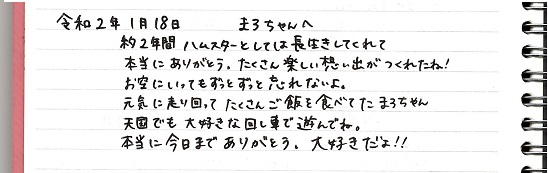 令和2年1月18日 まろちゃんへ
約2年間 ハムスターとしては長生きしてくれて
本当にありがとう。たくさん楽しい想い出がつくれたね!
お空にいってもずっとずっと忘れないよ。
元気に走り回ってたくさんご飯を食べてたまろちゃん
天国でも大好きな回し車で遊んでね。
本当に今日までありがとう。大好きだよ!!